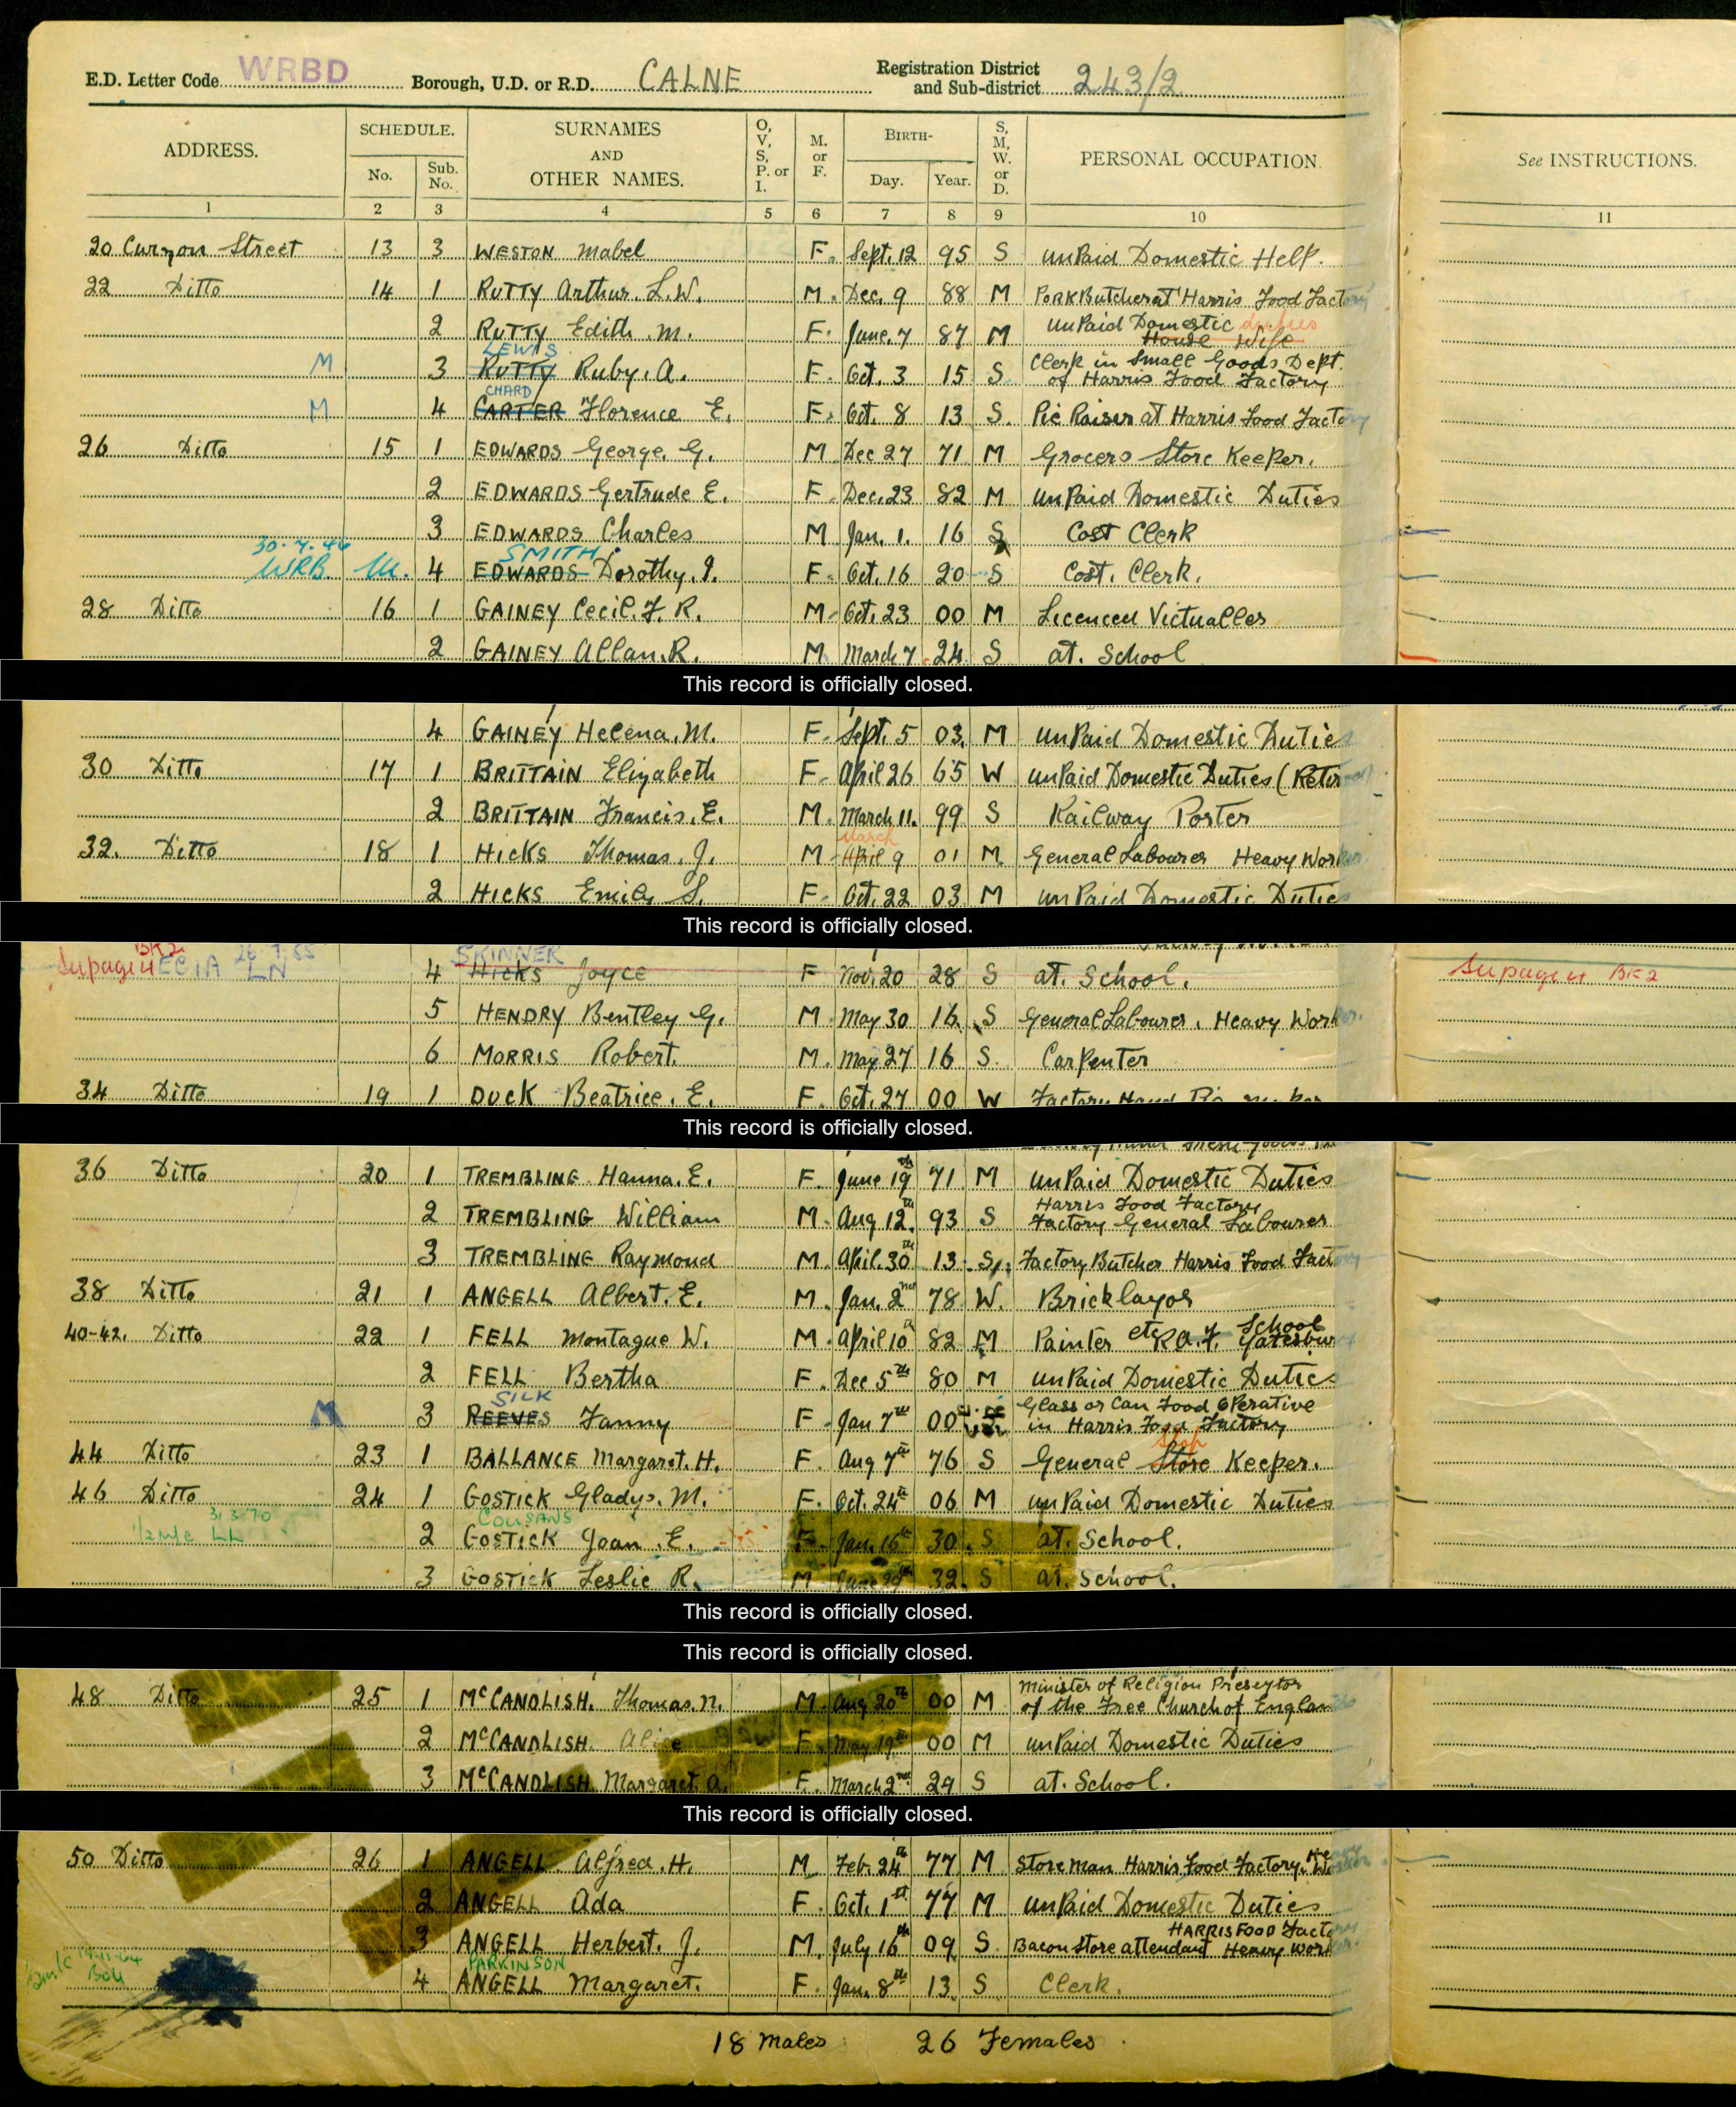 E.D. Letter Code WRBD Borough, U.D. or R.D. CALNE Registration District and Sub-district 243/2
ADDRESS. SCHEDULE. No. Sub. No. SURNAMES AND OTHER NAMES. O, V, S, P. or I. M. or F. BIRTH- Day. Year. S, M, W. or D. PERSONAL OCCUPATION. See INSTRUCTIONS.
1 2 3 4 5 6 7 8 9 10 11
20 Curzon Street 13 3 WESTON Mabel F. Sept. 12 95 S unPaid Domestic Help.
22 Ditto 14 1 RUTTY Arthur. L.W. M. Dec. 9 88 M PORK Butcher at Harris Food Factory
2 RUTTY Edith. M. F. June. 7 87 M unPaid Domestic duties House Wife
LEWIS
M 3 RUTTY Ruby. A. F. Oct. 3 15 S. Clerk in Small Goods Dept. of Harris Food Factory
CHARD
M 4 CARTER Florence E. F. Oct. 8 13 S. Pie Raiser at Harris Food Factory
26 Ditto 15 1 EDWARDS George. G. M Dec 27 71 M Grocers Store Keeper.
2 EDWARDS Gertrude E. F. Dec. 23 82 M unPaid Domestic Duties
3 EDWARDS Charles M Jan. 1. 16 S Cost Clerk
30.7.46 SMITH
WRB. M. 4 EDWARDS Dorothy. I. F. Oct. 16 20 S Cost. Clerk.
28 Ditto 16 1 GAINEY Cecil. F. R. M. Oct. 23 00 M Licenced Victualler
2 GAINEY Allan. R. M. March 7 24 S at. School
This record is officially closed.
4 GAINEY Helena. M. F. Sept. 5 03. M unPaid Domestic Duties
30 Ditto 17 1 BRITTAIN Elizabeth F. April 26 65 W unPaid Domestic Duties (Retired)
2 BRITTAIN Francis. E. M. March 11. 99 S Railway Porter
March
32. Ditto 18 1 HICKS Thomas. J. M April 9 01 M General Labourer Heavy Worker
2 HICKS Emily S. F. Oct. 22 03. M unPaid Domestic Duties
This record is officially closed.
BK2 SKINNER
Supage 4 LN 4 HICKS Joyce F Nov. 20 28 S at. School. Supage 4 BK2
5 HENDRY Bentley G. M. May 30 16. S General Labourer. Heavy Worker.
6 MORRIS Robert. M. May 27 16 S. Carpenter
34 Ditto 19 1 DUCK Beatrice. E. F. Oct. 27 00 W Factory Hand
This record is officially closed.
36 Ditto 20 1 TREMBLING Hanna. E. F. June 19th 71 M unPaid Domestic Duties
2 TREMBLING William M. Aug 12th. 93 S Harris Food Factory Factory General Labourer
3 TREMBLING Raymond M. April. 30th 13. S. Factory Butcher Harris Food Factory
38 Ditto 21 1 ANGELL Albert. E. M. Jan. 2nd 78 W. Bricklayer
40-42. Ditto 22 1 FELL Montague W. M. April 10th 82 M Painter etc R.A.F. School Yatesbury
2 FELL Bertha F. Dec 5th 80 M unPaid Domestic Duties
SILK
M 3 REEVES Fanny F. Jan 7th 00 Glass or Can Food Operative in Harris Food Factory
44 Ditto 23 1 BALLANCE Margaret. H. F. Aug 7th 76 S General Store Shop Keeper.
46 Ditto 24 1 GOSTICK Gladys. M. F. Oct. 24th 06 M unPaid Domestic Duties
31.3.70 COUSANS
LL 2 GOSTICK Joan. E. F. Jan. 16th 30. S at. School.
3 GOSTICK Leslie R. M June 32. S at. School.
This record is officially closed.
This record is officially closed.
48 Ditto 25 1 McCANDLISH. Thomas. N. M. Aug 20th 00 M Minister of Religion Presbyter of the Free Church of England
2 McCANDLISH. Alice F. May 19th 00 M unPaid Domestic Duties
3 McCANDLISH Margaret. A. F. March 2nd 29 S at. School.
This record is officially closed.
50 Ditto 26 1 ANGELL Alfred. H. M Feb. 24th 77 M Store man Harris Food Factory. Heavy Worker
2 ANGELL Ada F. Oct. 1st 77 M unPaid Domestic Duties
3 ANGELL Herbert. J. M. July 16th 09 S. HARRIS FOOD Factory Bacon store attendant Heavy Worker.
PARKINSON
4 ANGELL Margaret. F. Jan. 8th 13. S Clerk.
18 Males 26 Females